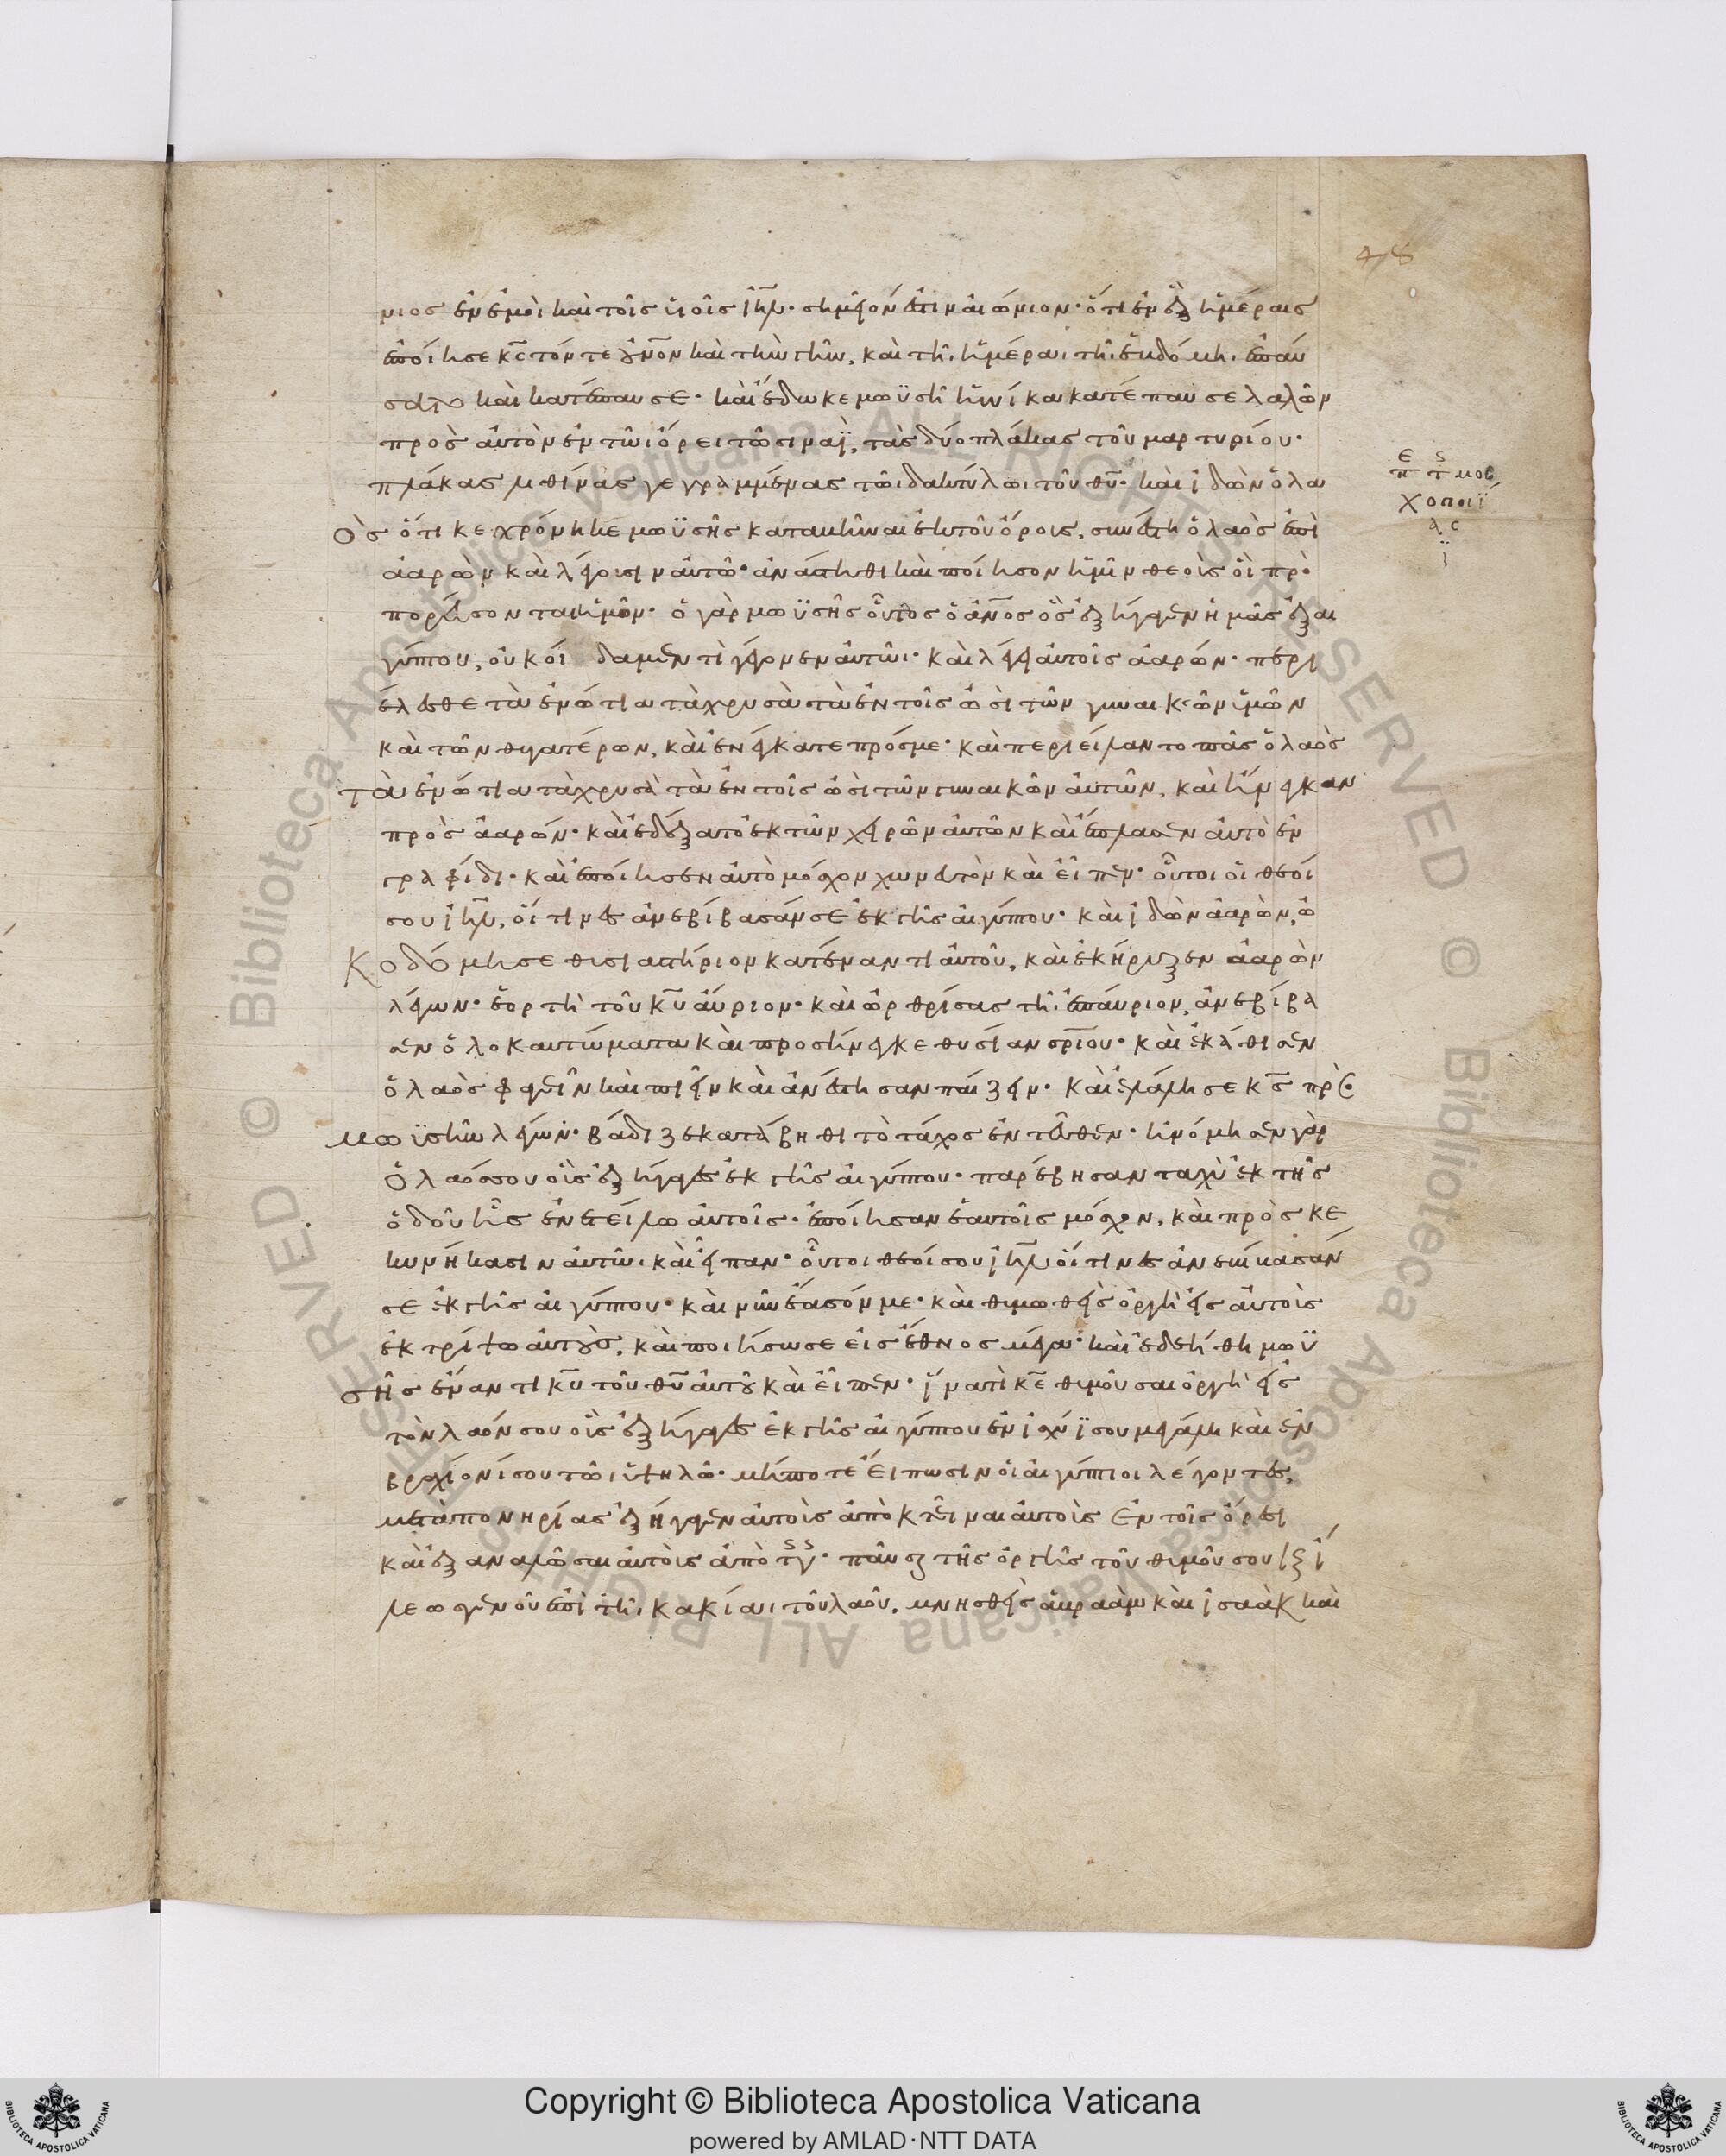 μιος ἐν ἐμοὶ καὶ τοῖς υἱοῖς ιηλ· σημεῖον ἐστιν αἰώνιον· ὅτι ἐν ἓξ ἡμέραις
ἐποίησε κς τόν τε οὐνον καὶ τὴν γῆν, καὶ τῆι ἡμέραι τῆι ἑβδόμηι ἐπαύ
σατο καὶ κατέπαυσε· καὶ ἔδωκε μωϋσῆ ἡνίκα κατέπαυσε λαλῶν
πρὸς αὐτὸν ἐν τῶι ὄρει τῶ σιναϊ, τὰς δύο πλάκας τοῦ μαρτυρίου·
πλάκας λιθίνας γεγραμμένας τῶι δακτύλωι τοῦ θυ· καὶ ἰδὼν ὁ λα
ὸς ὅτι κεχρόνηκε μωϋσῆς καταβῆναι ἐκ τοῦ ὄρους, συνέστη ὁ λαὸς ἐπὶ
ἀαρὼν καὶ λέγουσιν αὐτῶ· ἀνάστηθι καὶ ποίησον ἡμῖν θεοὺς οἳ προ
πορεύσονται ἡμῶν· ὁ γὰρ μωϋσῆς οὗτος ὁ ἀνος ὃς ἐξήγαγεν ἡμᾶς ἐξ αἰ
γύπτου, οὐκ οἴδαμεν τὶ γέγονεν αὐτῶι· καὶ λέγει αὐτοῖς ἀαρών· περι
έλεσθε τὰ ἐνώτια τὰ χρυσᾶ τὰ ἐν τοῖς ὠσὶ τῶν γυναικῶν ὑμῶν
καὶ τῶν θυγατέρων, καὶ ἐνέγκατε πρός με· καὶ περιείλαντο πᾶς ὁ λαὸς
τὰ ἐνώτια τὰ χρυσᾶ τὰ ἐν τοῖς ὠσὶ τῶν γυναικῶν αὐτῶν, καὶ ἤνεγκαν
πρὸς ἀαρών· καὶ ἐδέξατο ἐκ τῶν χειρῶν αὐτῶν καὶ ἔπλασεν αὐτὸ ἐν
γραφίδι· καὶ ἐποίησεν αὐτὸ μόσχον χωνευτὸν καὶ εἶπεν· οὗτοι οἱ θεοί
σου ιηλ, οἵτινες ἀνεβίβασάν σε ἐκ γῆς αἰγύπτου· καὶ ἰδὼν ἀαρὼν, ὠ
κοδόμησε θυσιαστήριον κατέναντι αὐτοῦ, καὶ ἐκήρυξεν ἀαρὼν
λέγων· ἑορτὴ τοῦ κυ αὔριον· καὶ ὀρθρίσας τῆι ἐπαύριον, ἀνεβίβα
σεν ὁλοκαυτώματα καὶ προσήνεγκε θυσίαν σριου· καὶ ἐκάθισεν
ὁ λαὸς φαγεῖν καὶ πιεῖν καὶ ἀνέστησαν παίζειν· καὶ ἐλάλησε κς πρὸς
μωϋσῆν λέγων· βάδιζε κατάβηθι τὸ τάχος ἐντεῦθεν· ἠνόμησεν γὰρ
ὁ λαός σου οὓς ἐξήγαγες ἐκ γῆς αἰγύπτου· παρέβησαν ταχὺ ἐκ τῆς
ὁδοῦ ἧς ἐνετείλω αὐτοῖς· ἐποίησαν ἑαυτοῖς μόσχον, καὶ προσκε
κυνήκασιν αὐτῶι καὶ εἶπαν· οὗτοι θεοί σου ιηλ οἵτινες ἀνεβίβασάν
σε ἐκ γῆς αἰγύπτου· καὶ νῦν ἔασόν με· καὶ θυμωθεὶς ὀργῆ εἰς αὐτοὺς
ἐκτρίψω αὐτοὺς, καὶ ποιήσω σε εἰς ἔθνος μέγα· καὶ ἐδεήθη μωϋ
σῆς ἔναντι κυ τοῦ θυ αὐτοῦ καὶ εἶπεν· ἵνατί κε θυμοῦσαι ὀργῆ εἰς
τὸν λαόν σου οὓς ἐξήγαγες ἐκ γῆς αἰγύπτου ἐν ἰσχύϊ σου μεγάλη καὶ ἐν
βραχίονί σου τῶι ὑψηλῶ· μήποτε εἴπωσιν οἱ αἰγύπτιοι λέγοντες,
μετὰ πονηρίας ἐξήγαγεν αὐτοὺς ἀποκτεῖναι αὐτοὺς ἐν τοῖς ὄρεσι
καὶ ἐξαναλῶσαι αὐτοὺς ἀπὸ τς γς· παῦσαι τῆς ὀργῆς τοῦ θυμοῦ σου καὶ ἵ
λεως γενοῦ ἐπὶ τῆι κακίαι τοῦ λαοῦ, μνησθεὶς ἀβραὰμ καὶ ἰσαὰκ καὶ
χοποιί